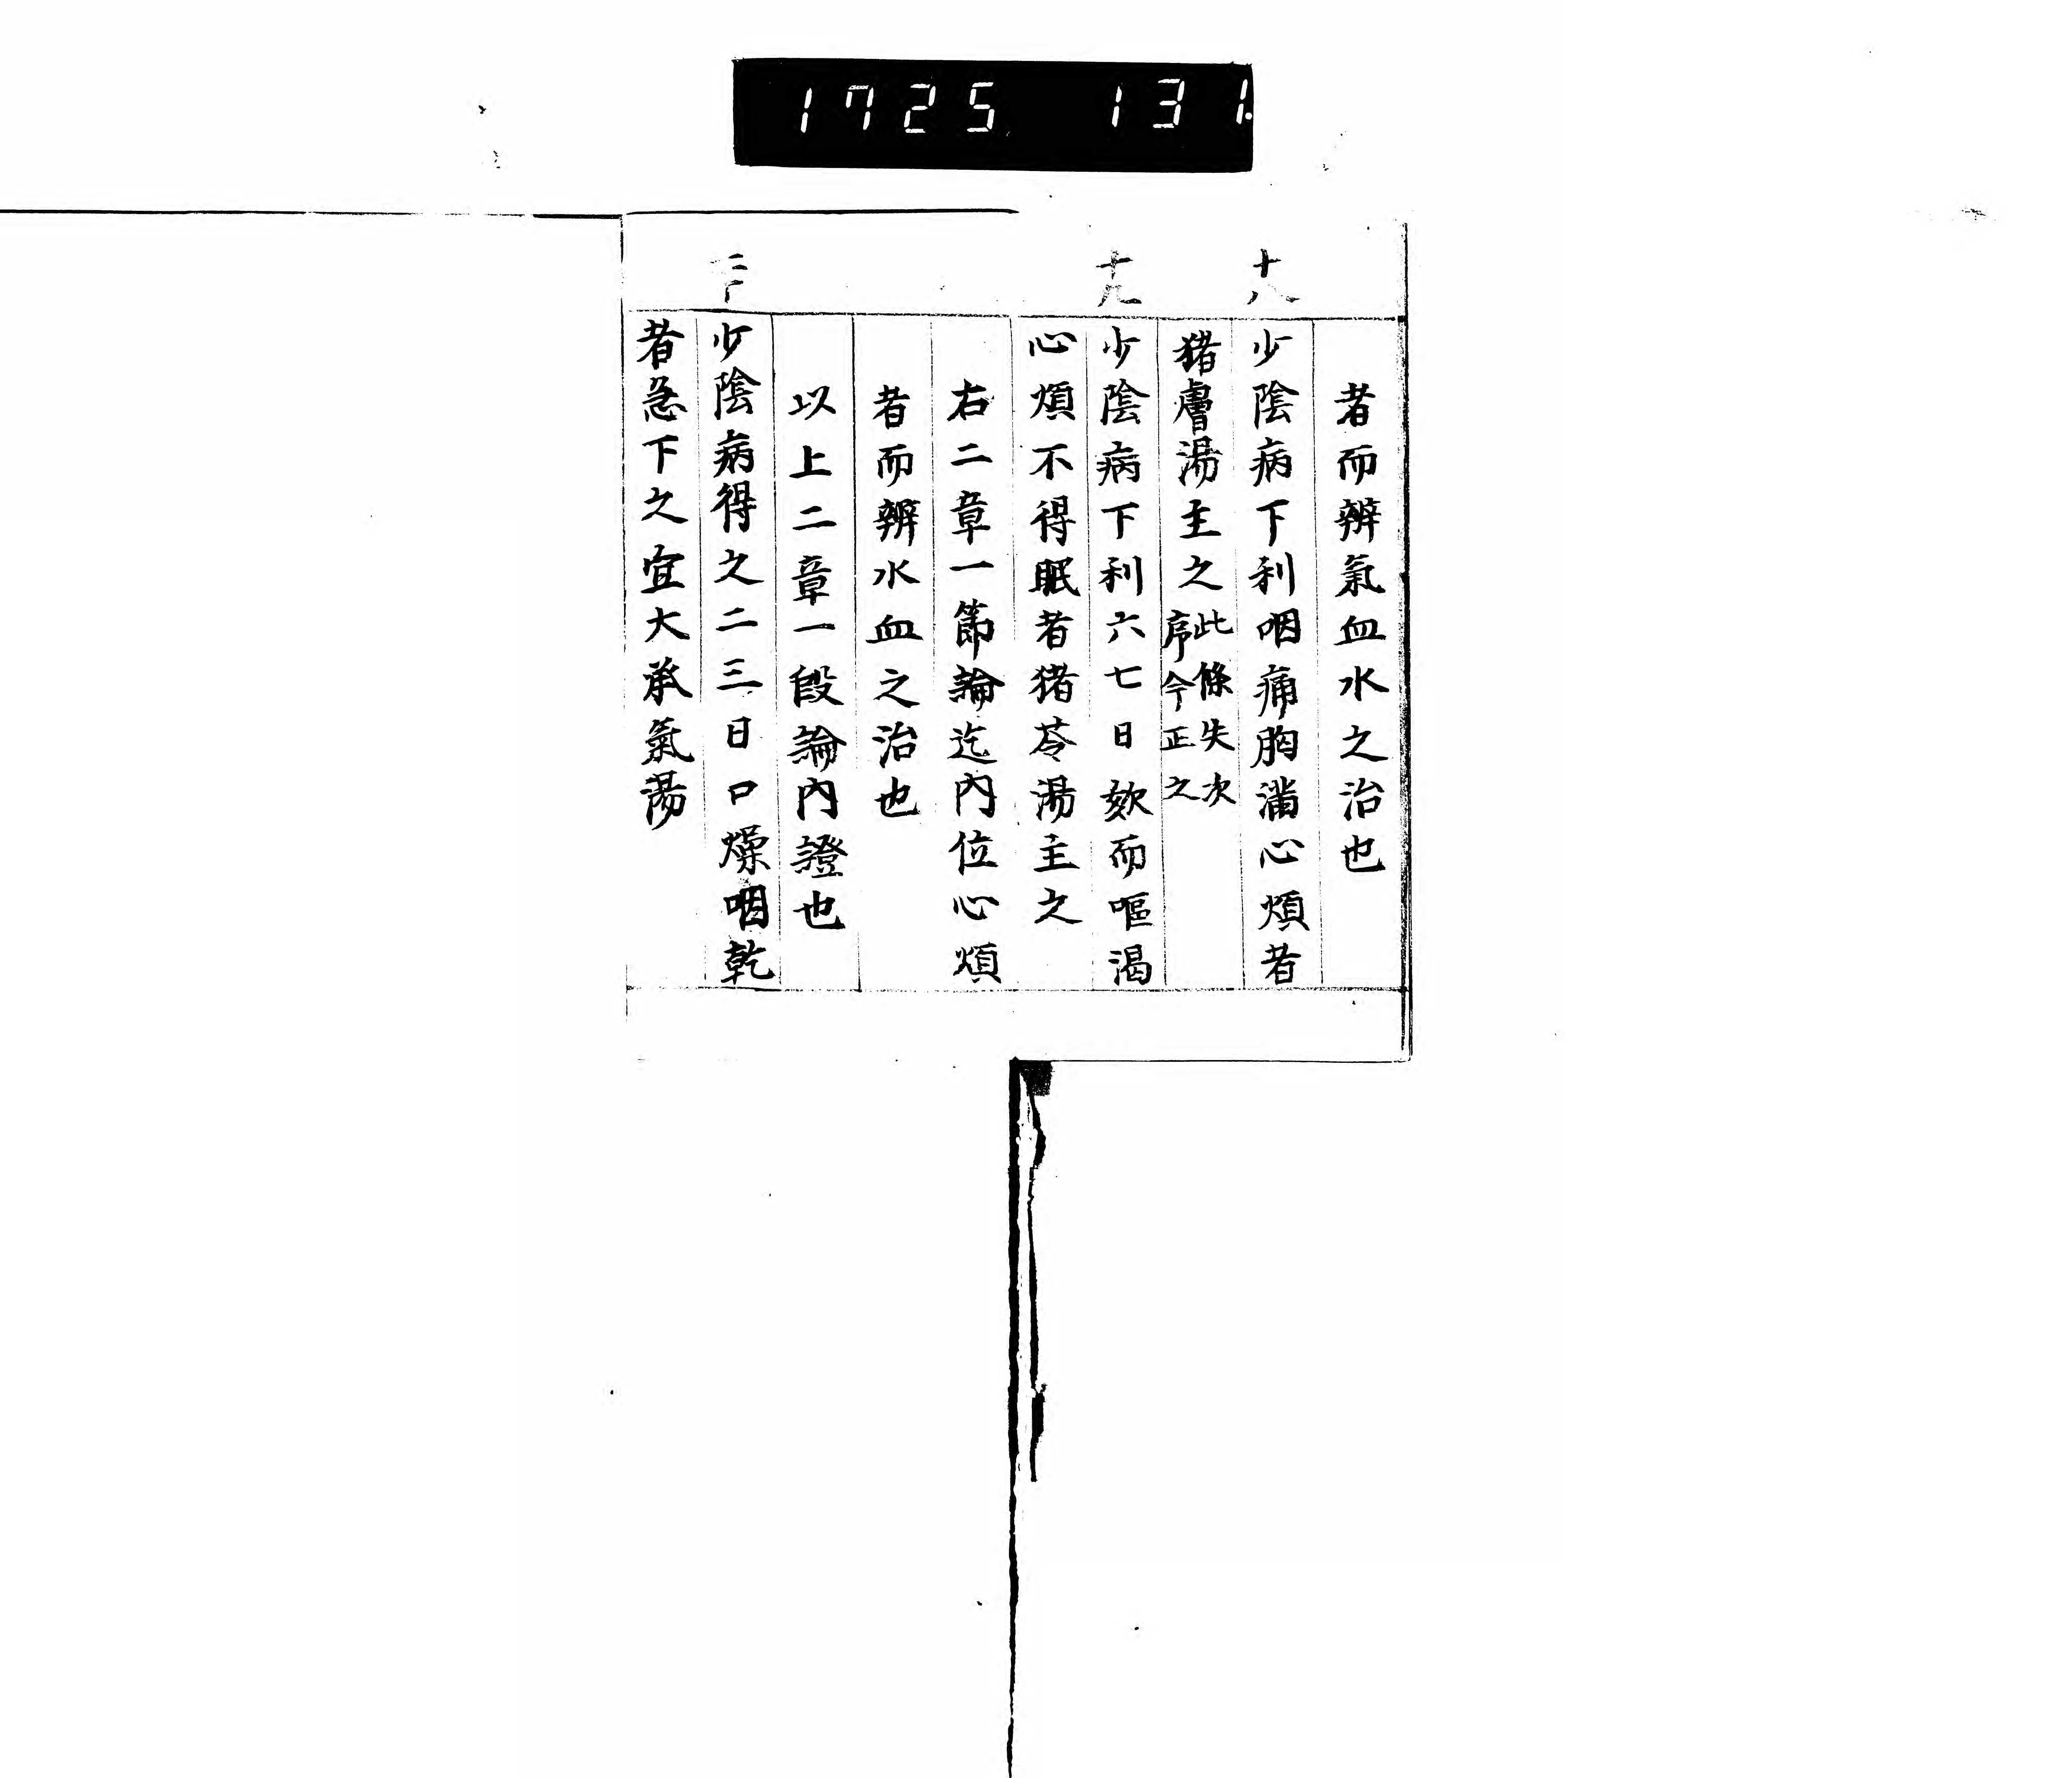 1725 131.
者而辨氣血水之治也
十八
少陰病下利咽痛胸滿心煩者
猪膚湯主之此條失次
序今正之
十九
少陰病下利六七日欬而嘔渴
心煩不得眠者猪苓湯主之
右二章一節論迄內位心煩
者而辨水血之治也
以上二章一段論內證也
二十
少陰病得之二三日口燥咽乾
者急下之宜大承氣湯